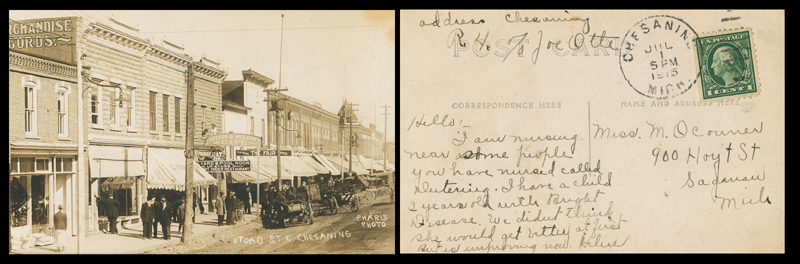 RCHANDISE
ORDS.
CARD & POOL ROOM
RESTAURANT
PHARIS
PHOTO
BROAD ST. CHESANING
address Chesaning
R 4. % Joe Otte
POST CARD
CHESANING
JUL
1
5 PM
1915
MICH.
U.S. POSTAGE
1 CENT 1
CORRESPONDENCE HERE
NAME AND ADDRESS HERE
Hello:-
I am nursing
near some people
you have nursed called
. I have a child
2 years old with Bright
Disease. We didnt think
she would get better at first
But is improving now.
Miss. M. O Conner
900 Hoyt St
Saginaw
Mich